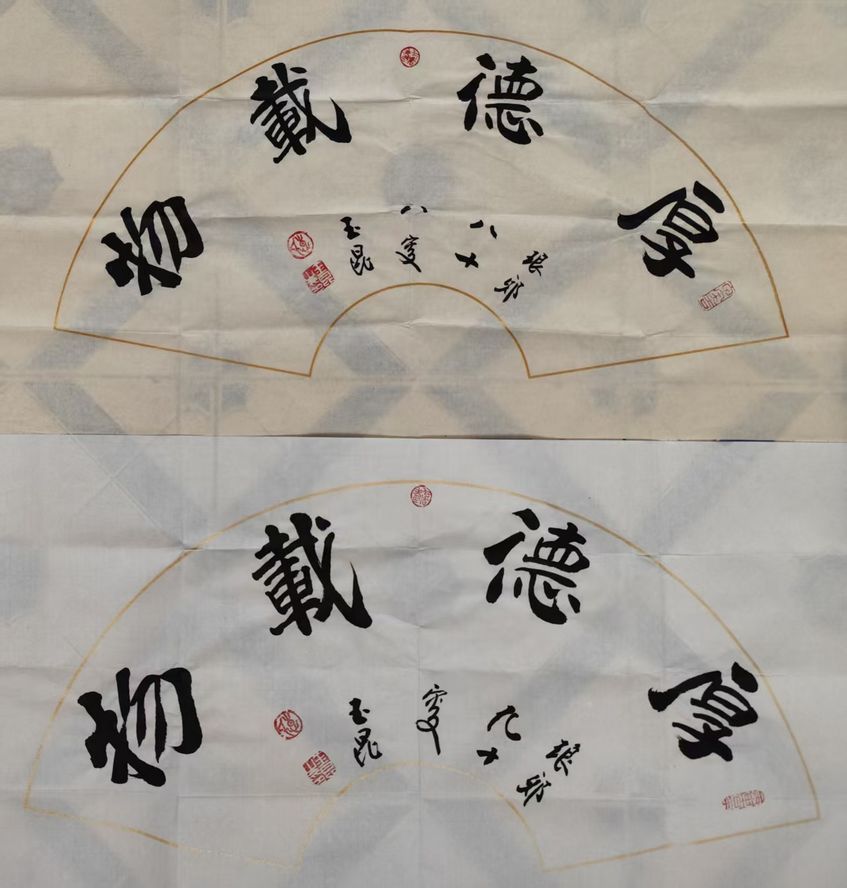 厚德載物
琅邪
八十
八叟
玉昆
厚德載物
琅邪
九十
叟
玉昆